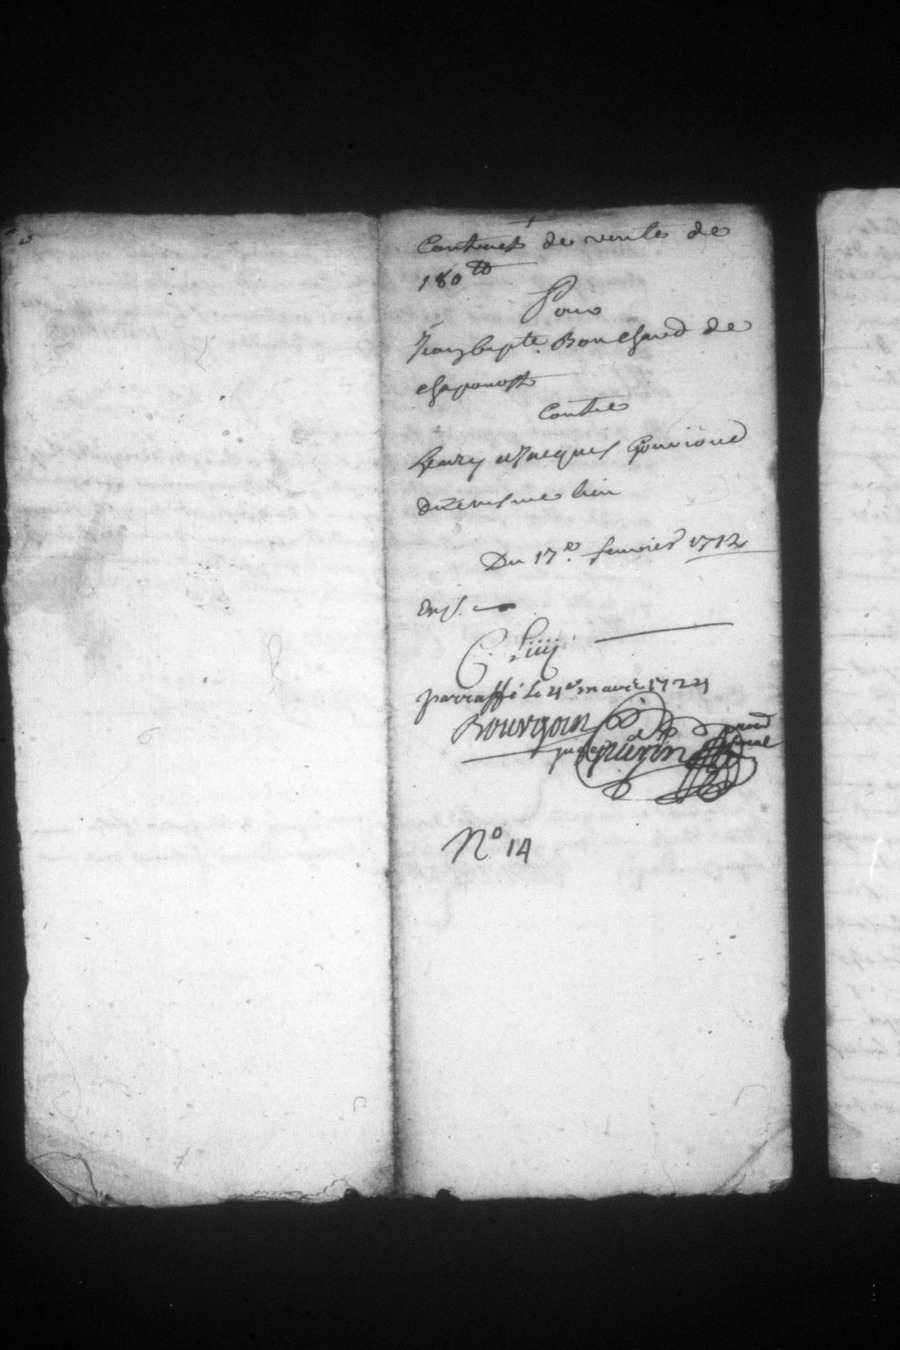 Contract de vente de
180 tt
Pour
Jean bapte. Bouchard de
chaponost
Contre
henry et Jacques Gouvioud
du mesme lieu
Du 17.e fevrier 1712
C. Liiij
parraffé le 4e mars 1724
Bourgoin
juge Guerin procr
fiscal
No 14